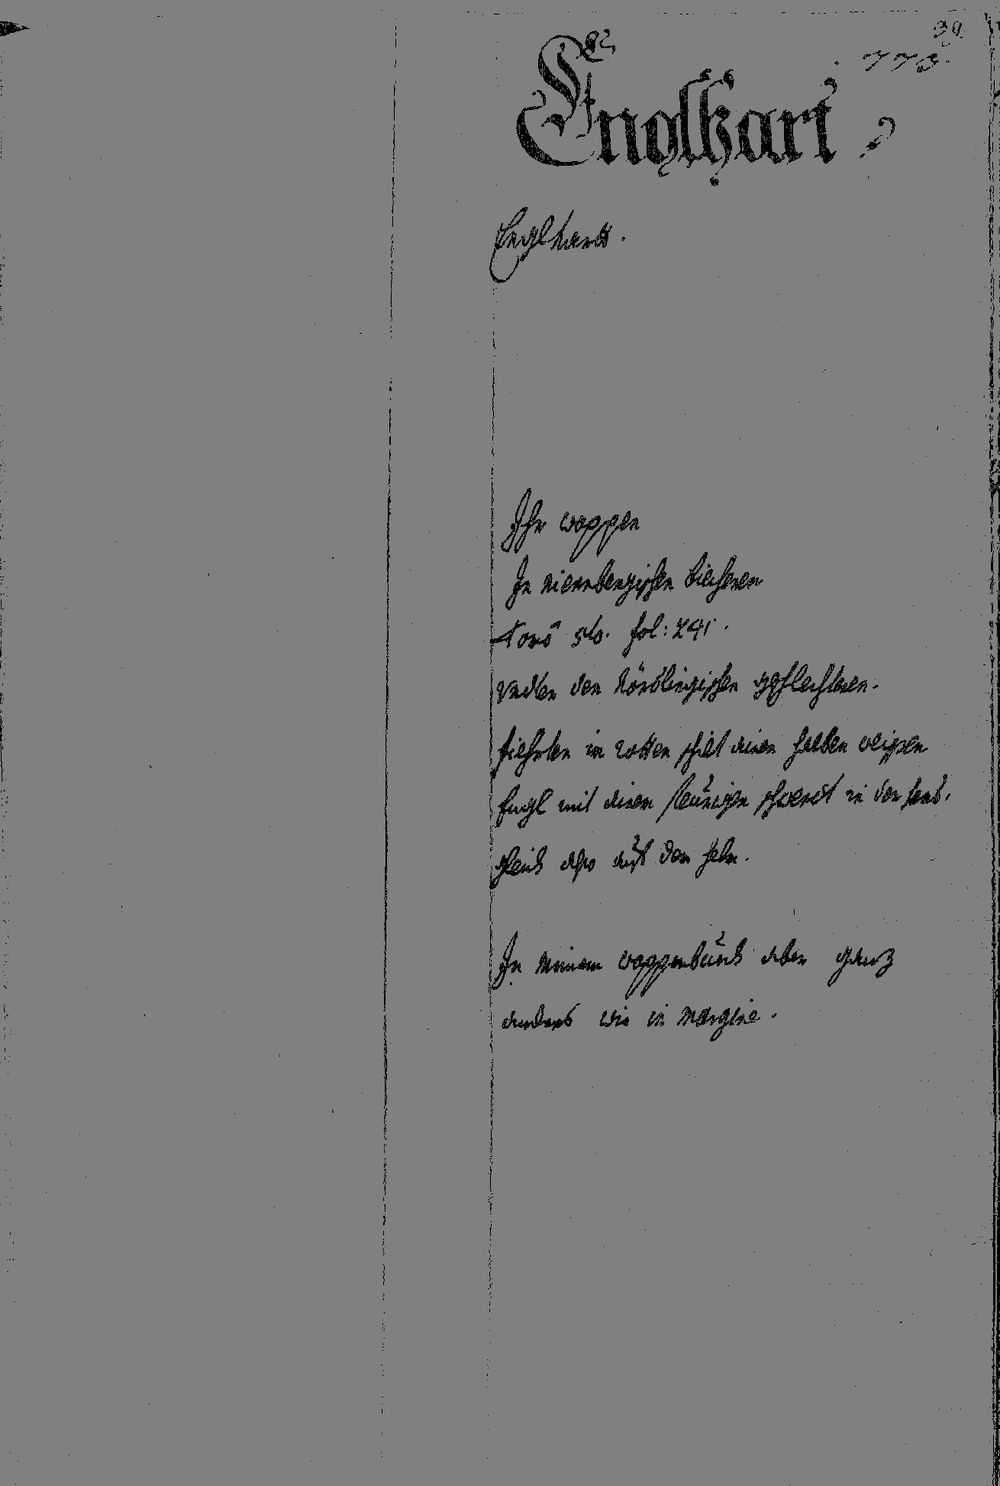 39
773.
Englhart
Englhartt.
Ihr wappen
In niernbergischen biechern
Tomo fol: 241.
Under den Nördlingischen gschlechtern.
fiehrten in rotten schilt einen halben weissen
Engl mit einem feürigen schwerdt in der hand,
gleich also auf dem helm.
In meinem wappenbuech aber ganz
anderst wie in margine.